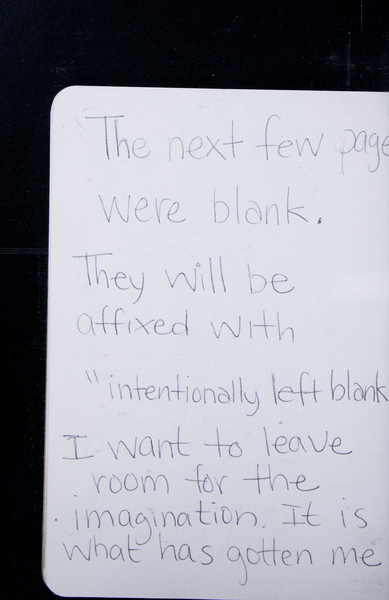 The next few page
were blank.
They will be
affixed with
"intentionally left blank
I want to leave
room for the
imagination. It is
what has gotten me